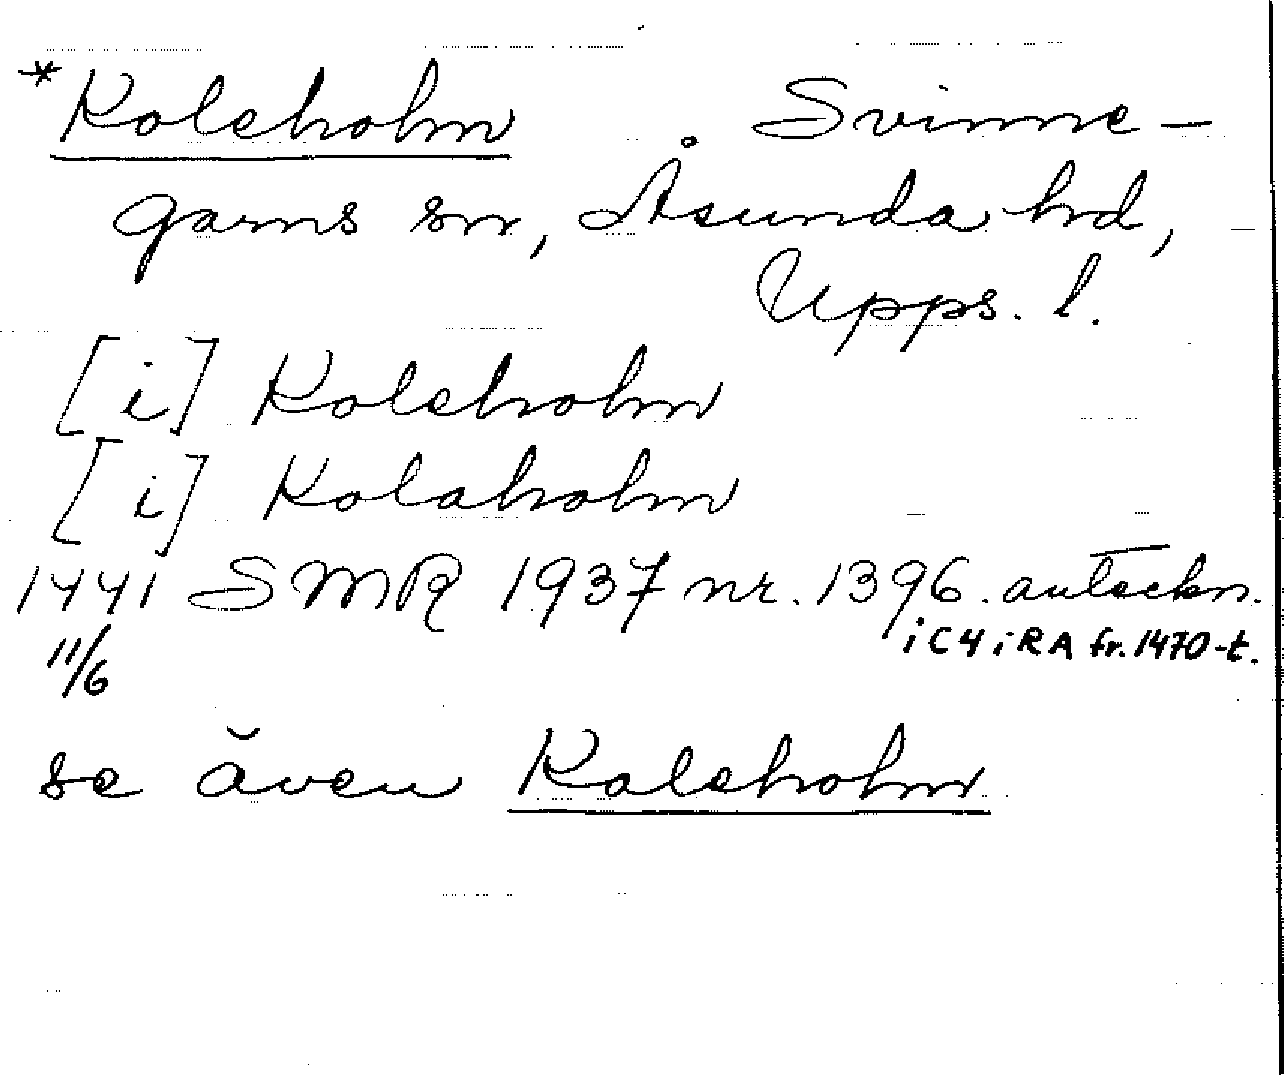 *Kolsholm Svinne-
garns sn, Åsunda hd,
Upps. l.
[i] Kolsholm
[i] Kolaholm
1441 SMR 1937 nr. 1396. anteckn.
11/6 i C4 i RA fr. 1470-t.
se även Kalsholm